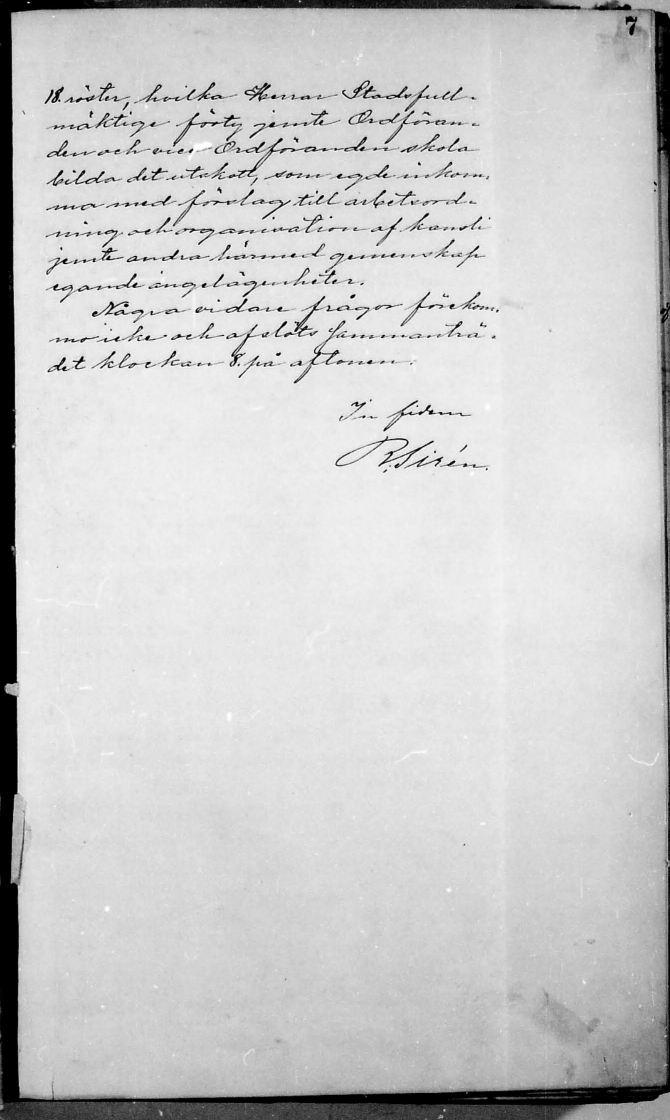 7
18. röster, hvilka Herrar Stadsfull-
mäktige jemte Ordföran-
den och vice Ordföranden skola
bilda det utskott, som egde inkom-
ma med förslag till arbetsord-
ning och organisation af kansli
jemte andra härmed gemenskap
egande angelägenheter.
Några vidare frågor förekom-
mo icke och afslöts sammanträ-
det klockan 8. på aftonen.
In fidem
R. Sirén.